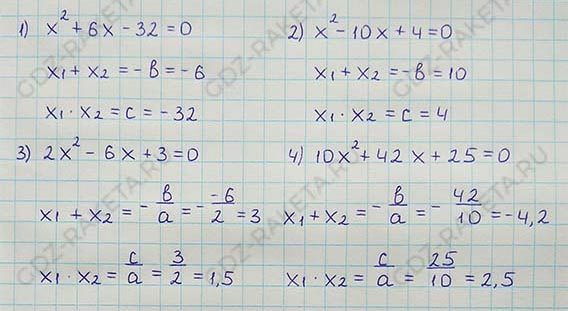 1) x² + 6x - 32 = 0
x₁ + x₂ = -в = -6
x₁ · x₂ = с = -32
2) x² - 10x + 4 = 0
x₁ + x₂ = -в = 10
x₁ · x₂ = с = 4
3) 2x² - 6x + 3 = 0
x₁ + x₂ = - в/а = - -6/2 = 3
x₁ · x₂ = с/а = 3/2 = 1,5
4) 10x² + 42x + 25 = 0
x₁ + x₂ = - в/а = - 42/10 = -4,2
x₁ · x₂ = с/а = 25/10 = 2,5
GDZ-RAKETA.RU